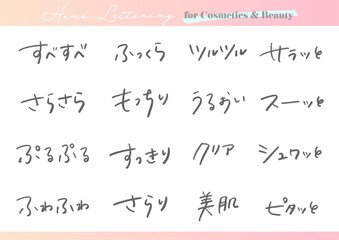 Hand Lettering for Cosmetics & Beauty
すべすべ ふっくら ツルツル サラッと
さらさら もっちり うるおい スーッと
ぷるぷる すっきり クリア シュワッと
ふわふわ さらり 美肌 ピタッと